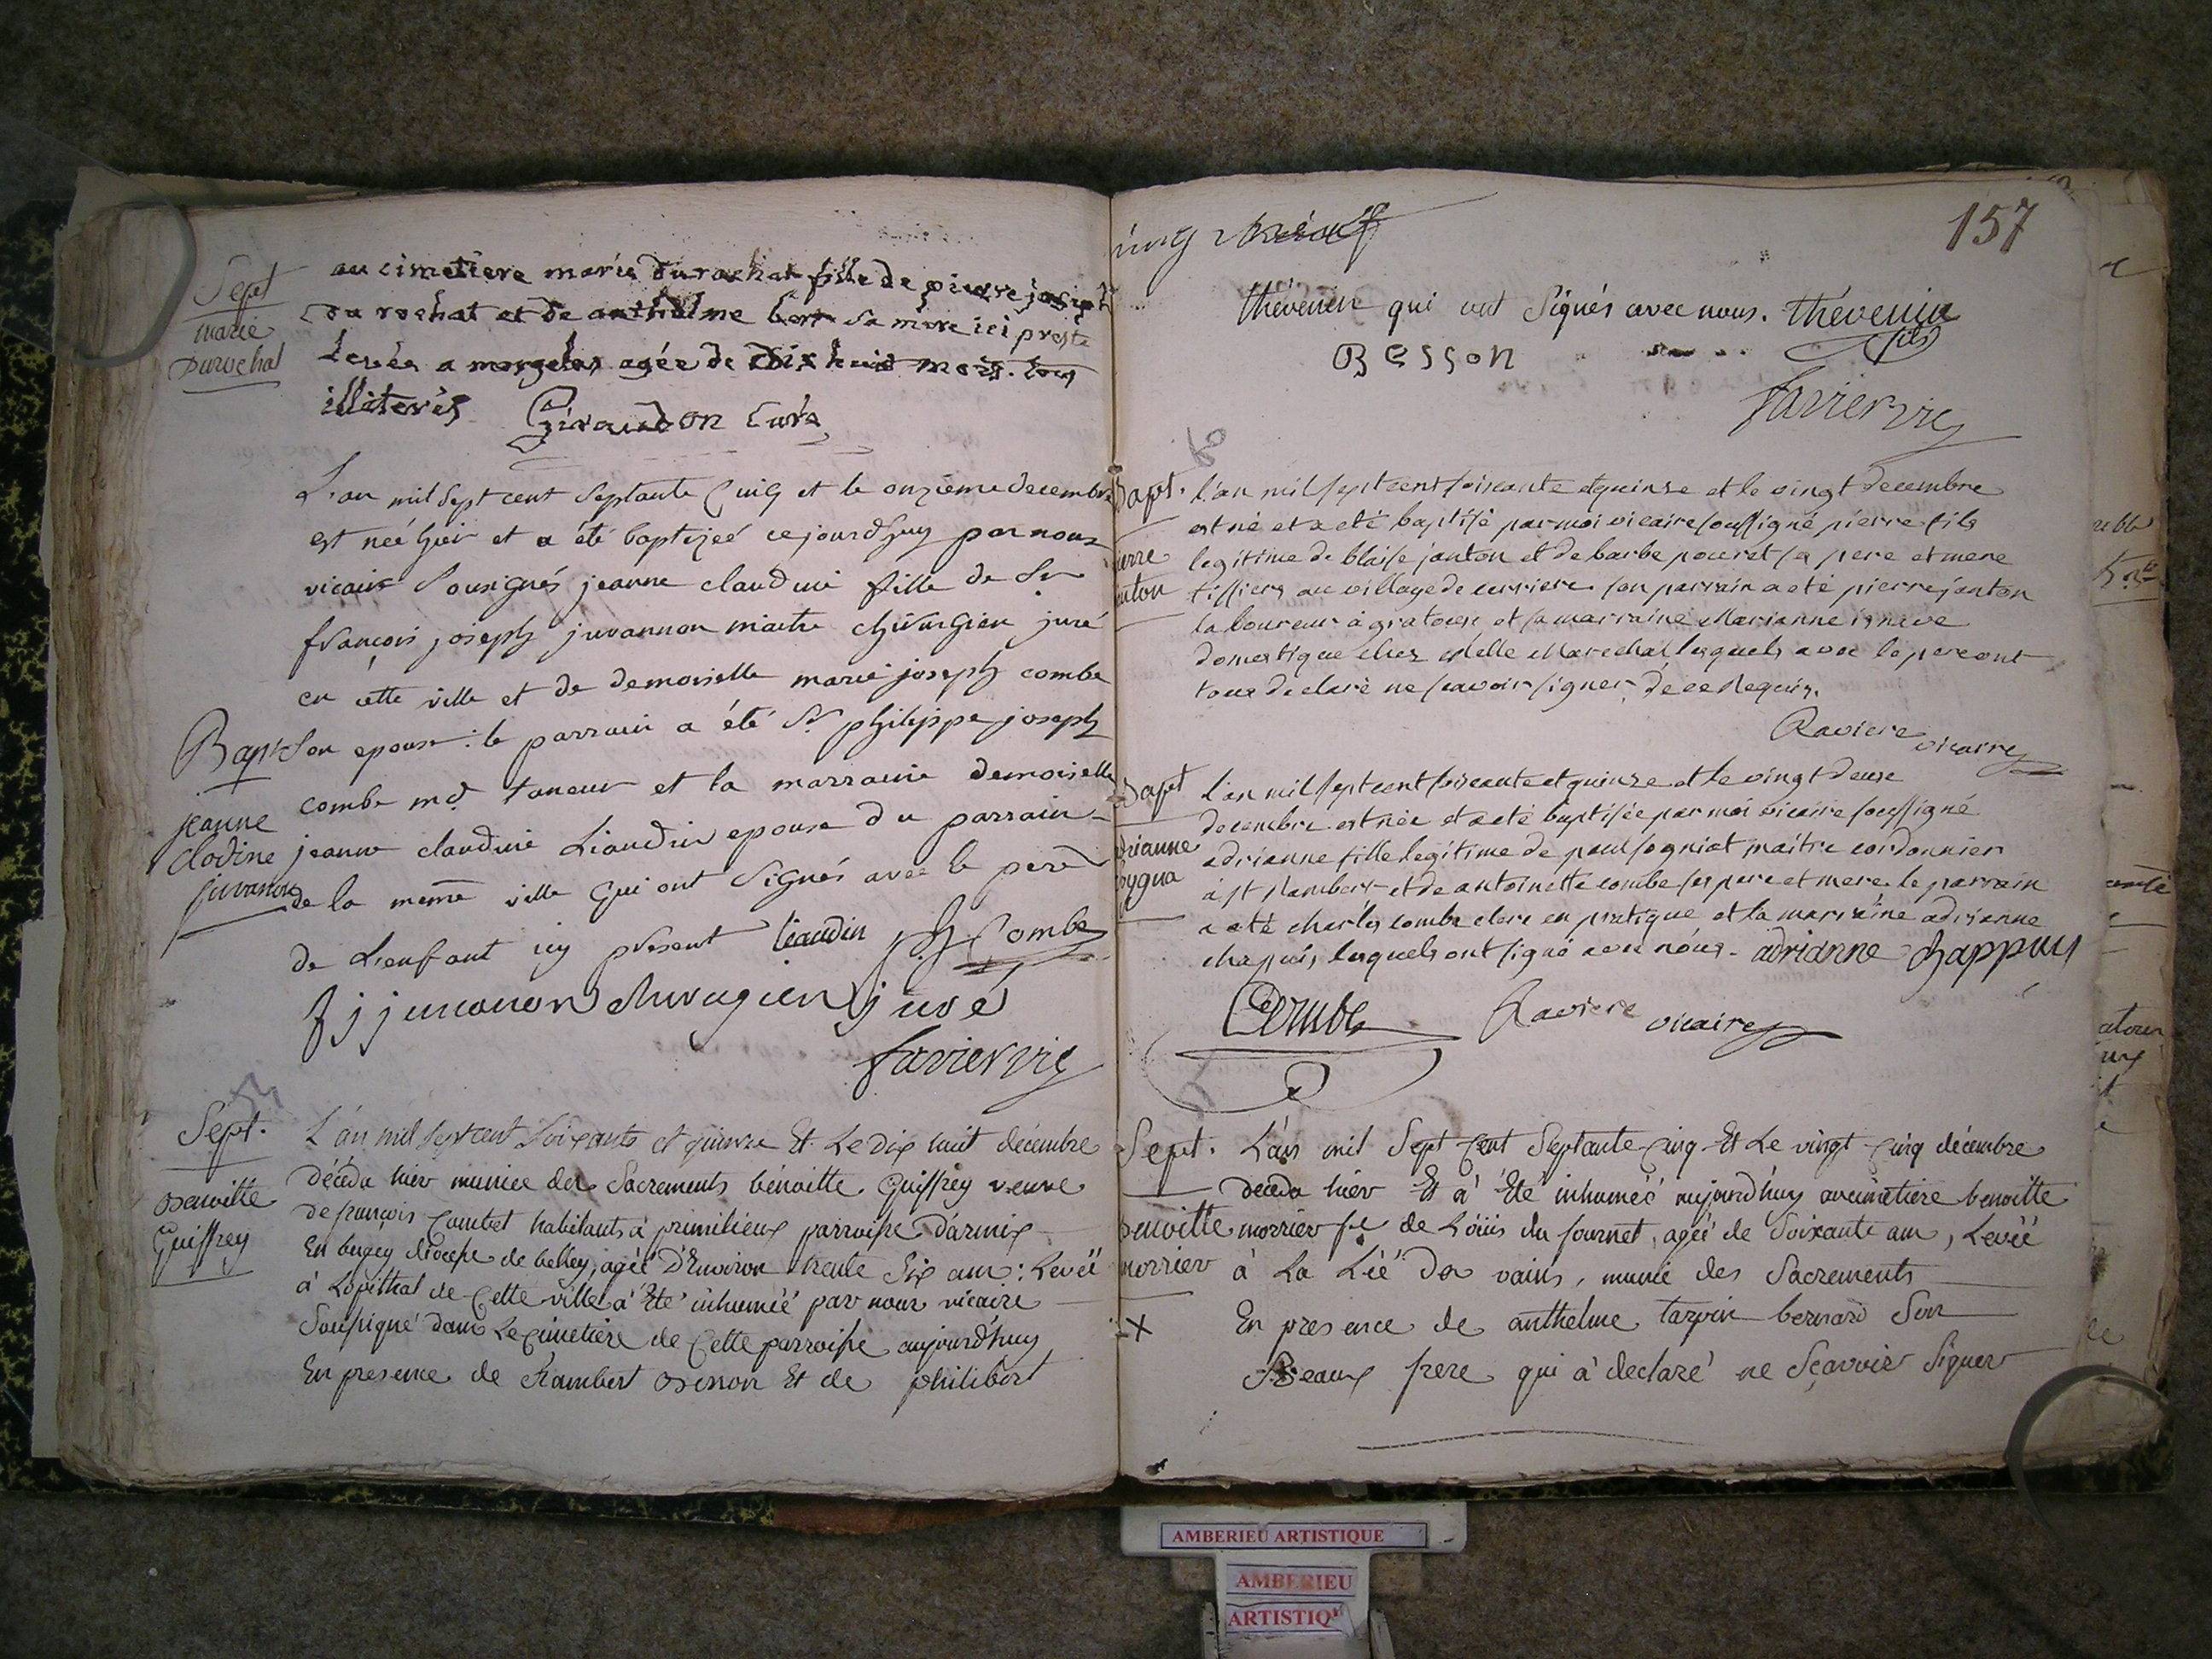 Sept
marie
Durochat
au cimetiere marie Durochat fille de pierre joseph
du rochat et de anthelme bert sa mere ici preste
Levée a morgelas agée de dix huit mois. tous
illiterés Giraudon Curé
L'an mil sept cent septante Cinq et le onzieme decembre
est neé hier et a été baptizeé cejourd'huy par nous
vicaire Sousignés jeanne claudine fille de Sr
françois joseph juvannon maitre chirurgien juré
en cette ville et de demoiselle marie joseph combe
Bapt
jeanne
clodine
juvanon
son epouse: le parrain a été Sr philippe joseph
combe md taneur et la marraine demoiselle
jeanne claudine Liaudin epouse du parrain
de la meme ville qui ont signés avec le pere
de L'enfant icy present Liaudin ph Combe
f j juvanon chirugien juré
favier vic
Sept.
Benoitte
Guiffrey
L'an mil sept cent soixante et quinze Et Le dix huit décembre
décéda hier muniee des Sacrements bénoitte Guiffrey veuve
de françois Combet habitants à primilieux parroisse D'armix
En bugey diocese de belley, ageé D'Environ trente Six ans: Levéé
à Lopithal de Cette ville à Eté inhuméé par nous vicaire
Soussigné dans Le cimetière de Cette parroisse aujourd'huy
En presence de Rambert Besson Et de philibert
157
thévenin qui ont Signés avec nous. thevenin
fils
Besson
favier vic
Bapt.
pierre
janton
l'an mil sept cent soixante et quinze et le vingt decembre
est né et a eté baptisé par moi vicaire soussigné pierre fils
legitime de blaise janton et de barbe pouret sa pere et mere
tissiers au village de serriere son parrain a eté pierre janton
laboureur à gratoux et sa marraine Marianne
domestique chez Melle Marechal lesquels avec le pere ont
tous declaré ne scavoir signer de ce Requis.
Raviere vicaire
Bapt
adrianne
sogna
l'an mil sept cent soixante et quinze et le vingt deuxe
decembre est née et a eté baptisée par moi vicaire soussigné
adrianne fille legitime de paul sogniat maitre cordonnier
à st Rambert et de antoinette combe ses pere et mere le parrain
a eté charles combe clerc en pratique et la marraine adrianne
chapuis lesquels ont signé avec nous. adrianne Chappuis
Combe Raviere vicaire
Sept.
benoitte
morrier
X
L'an mil Sept Cent Septante Cinq Et Le vingt Cinq décembre
deceda hier Et à Eté inhuméé aujourd'huy au cimetiere benoitte
morrier fe de Loüis du fournet, ageé de Soixante ans, Levéé
à La Léé des vains, munie des Sacrements
En presence de anthelme tarpin bernard Son
Beaux frere qui à declaré ne Sçavoir Signer
AMBERIEU ARTISTIQUE
AMBERIEU
ARTISTIQ